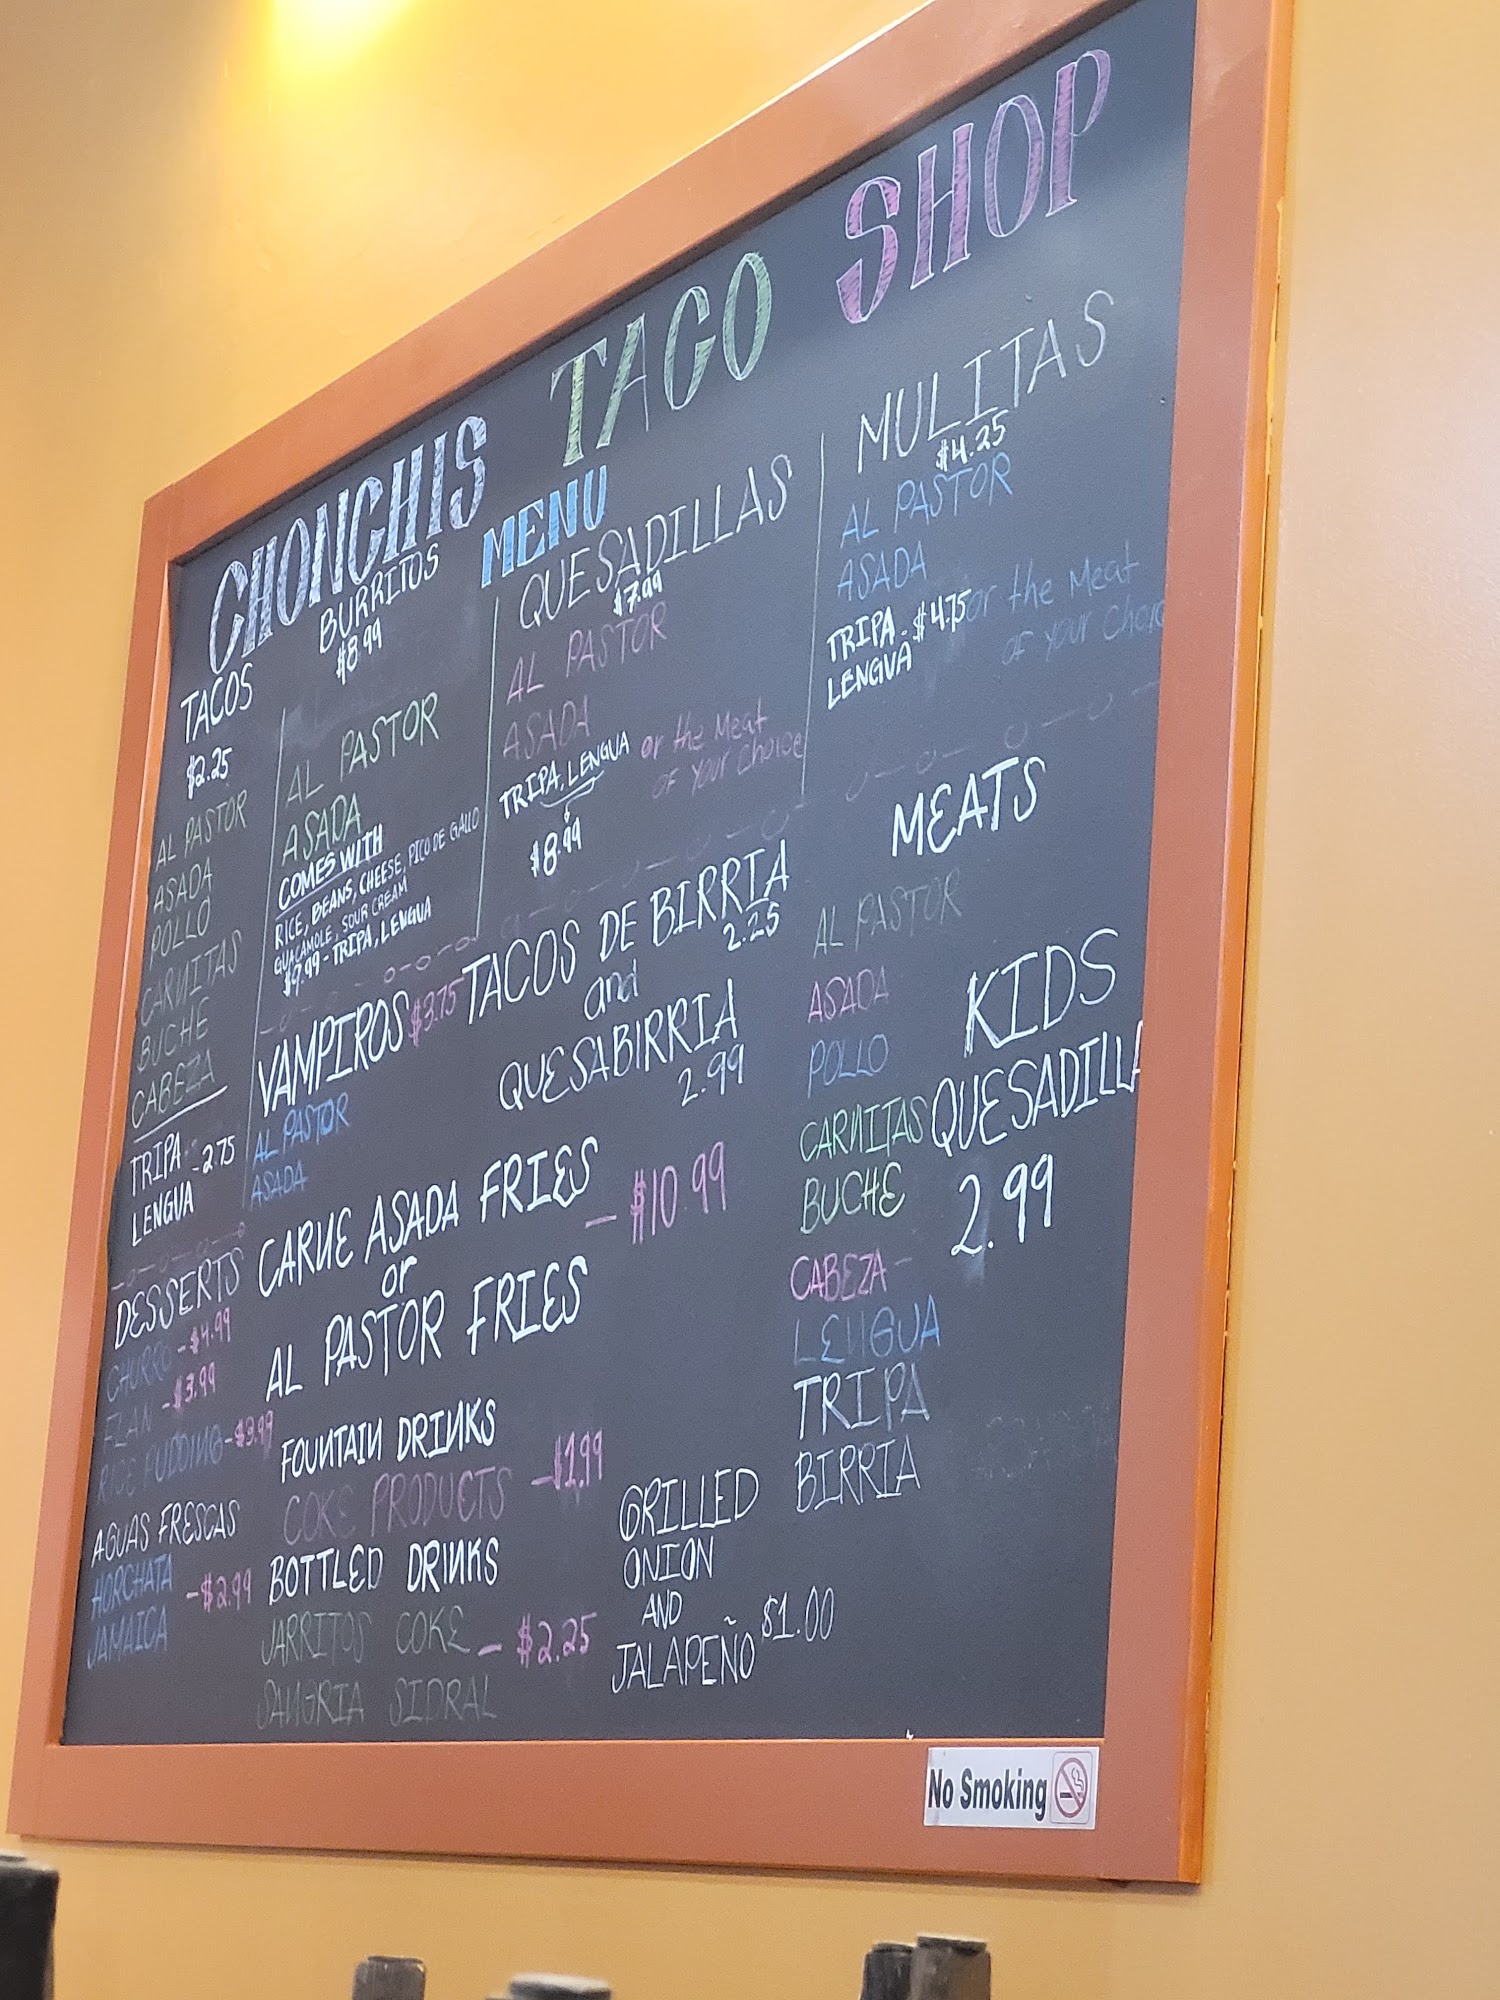 CHONCHIS TACO SHOP
MENU
TACOS
$2.25
AL PASTOR
ASADA
POLLO
CARNITAS
BUCHE
CABEZA
TRIPA
LENGUA - 2.75
BURRITOS
$8.99
AL PASTOR
ASADA
COMES WITH
RICE, BEANS, CHEESE, PICO DE GALLO
GUACAMOLE, SOUR CREAM
$9.99 - TRIPA, LENGUA
QUESADILLAS
$7.99
AL PASTOR
ASADA
TRIPA, LENGUA
$8.99
or the Meat
of your Choice
MULITAS
$4.25
AL PASTOR
ASADA
TRIPA - $4.75
LENGUA
or the Meat
of your Choic
VAMPIROS $3.75
AL PASTOR
ASADA
TACOS DE BIRRIA
2.25
and
QUESABIRRIA
2.99
CARNE ASADA FRIES
or
AL PASTOR FRIES
- $10.99
MEATS
AL PASTOR
ASADA
POLLO
CARNITAS
BUCHE
CABEZA -
LENGUA
TRIPA
BIRRIA
KIDS
QUESADILLA
2.99
DESSERTS
CHURRO - $4.99
FLAN - $3.99
RICE PUDDING - $3.99
AGUAS FRESCAS
HORCHATA
JAMAICA
- $2.99
FOUNTAIN DRINKS
COKE PRODUCTS - $1.99
BOTTLED DRINKS
JARRITOS COKE - $2.25
SANGRIA SIDRAL
GRILLED
ONION
AND
JALAPEÑO $1.00
No Smoking